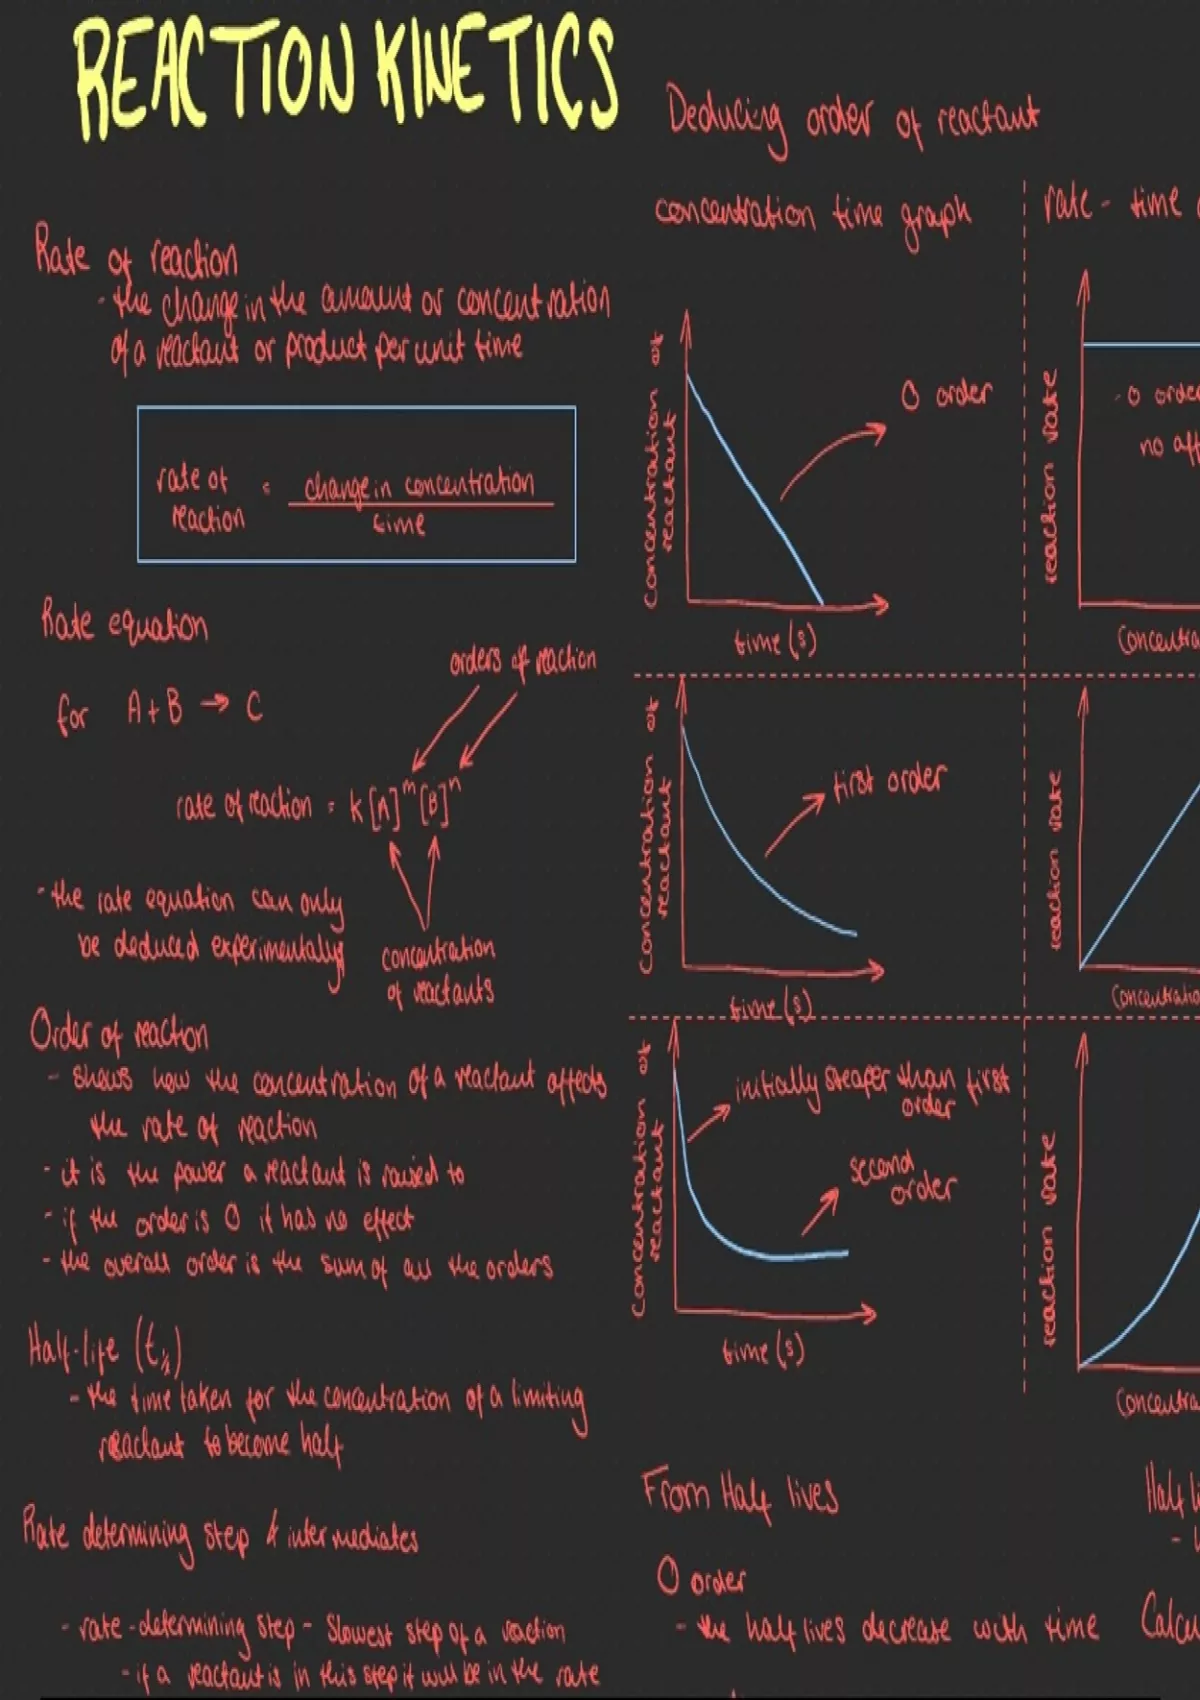 REACTION KINETICS
Rate of reaction
- the change in the amount or concentration
of a reactant or product per unit time
rate of reaction = change in concentration
time
Rate equation
for A + B → C
orders of reaction
rate of reaction = k [A]^m [B]^n
- the rate equation can only
be deduced experimentally
concentration
of reactants
Order of reaction
- shows how the concentration of a reactant affects
the rate of reaction
- it is the power a reactant is raised to
- if the order is 0 it has no effect
- the overall order is the sum of all the orders
Half-life (t½)
- the time taken for the concentration of a limiting
reactant to become half
Rate determining step & intermediates
- rate-determining step - slowest step of a reaction
- if a reactant is in this step it will be in the rate
Deducing order of reactant
concentration time graph
Concentration of
reactant
0 order
time (s)
Concentration of
reactant
first order
time (s)
Concentration of
reactant
initially steaper than first
order
second
order
time (s)
rate - time
reaction rate
- 0 orde
no aff
Concentra
reaction rate
Concentratio
reaction rate
Concentra
From Half lives
0 order
- the half lives decrease with time
Half li
Calcu